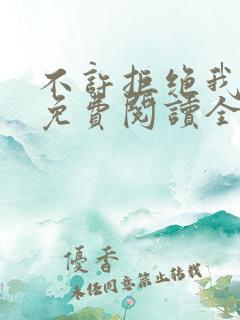 不許拒絕我
免費閱讀全
優香
未經同意禁止轉載